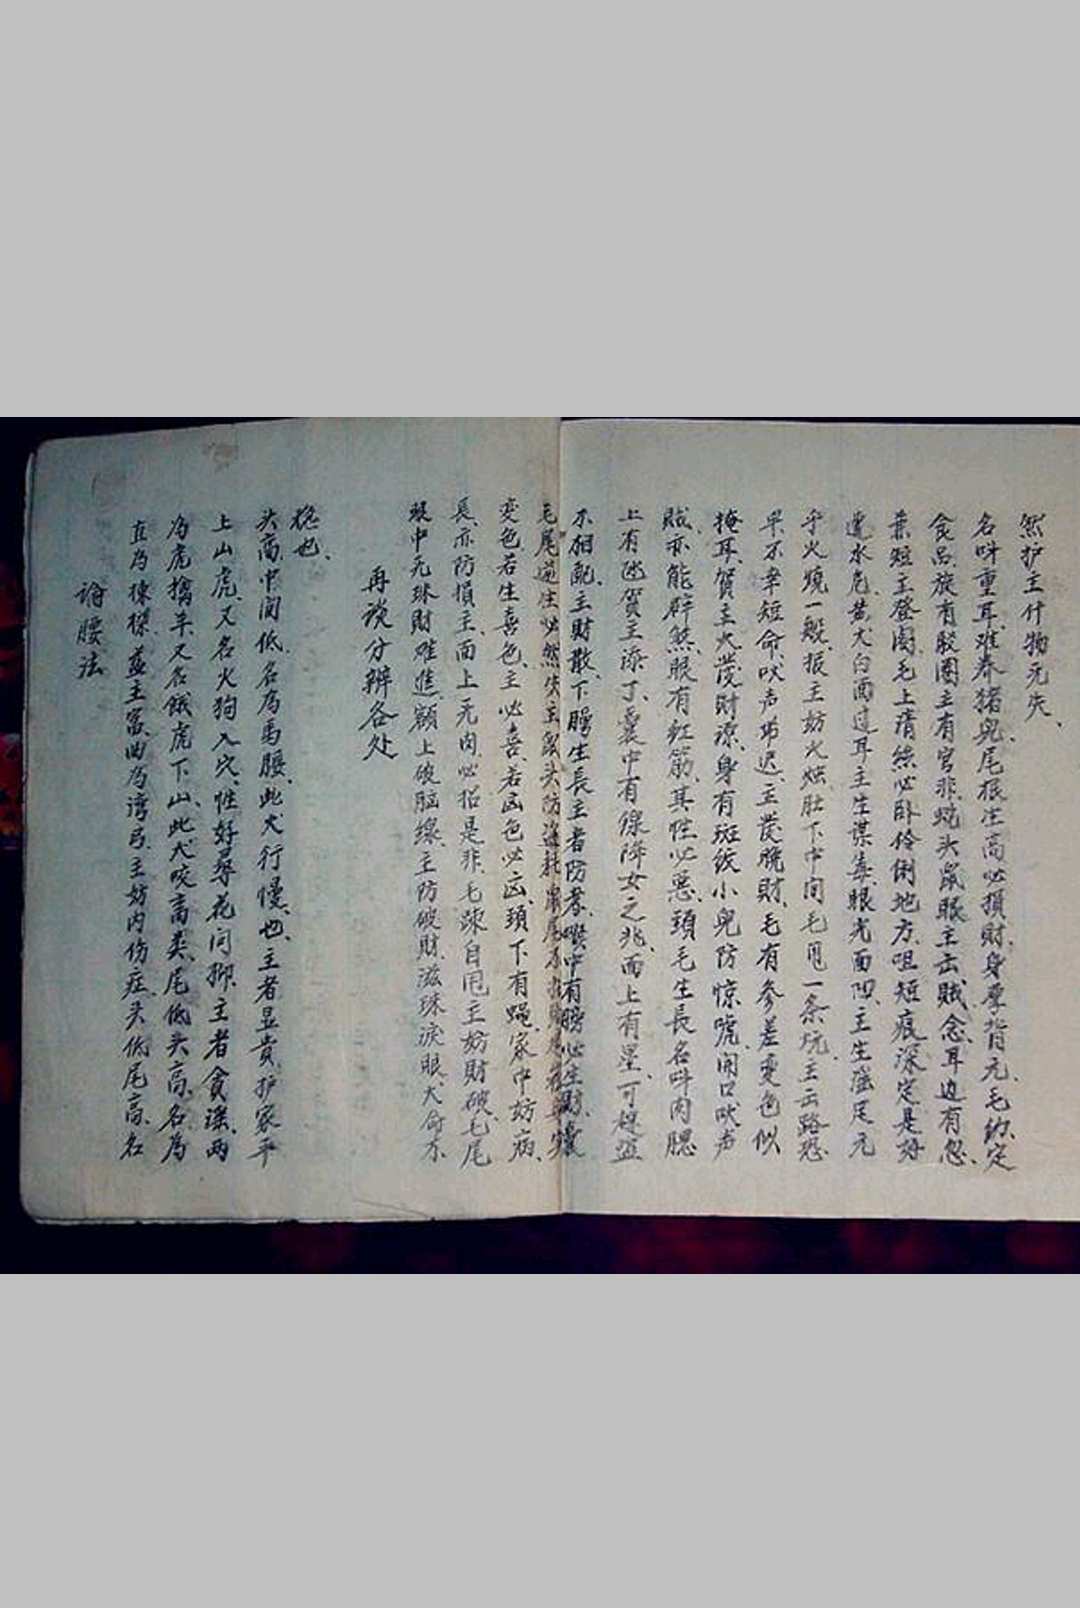 論腰法
直為棟樑、益主富、曲為湾弓、主妨内伤症、头低尾高、名
為虎擒羊、又名餓虎下山、此犬咬高类、尾低头高、名為
上山虎、又名火狗入穴、性好尋花问柳、主者貪謡、两
头高、中间低、名為馬腰、此犬行慢、也、主者显贵、护家平
稳也、
再谈分辨各处
眼中无珠財难進、額上破脑缐、主防破財、滋珠淚眼、大命不
長、亦防損主、面上无肉、必招是非、毛踈自甩、主妨財破、毛尾
变色、若生喜色、主必喜、若凶色必凶、頚下有蝇、家中妨病、
毛尾逆生、必然失主、鼠头防盗耗
不相配、主財散、下膅生長、主者防孝、喉中有膀、必生財、囊
上有迷、贺主添丁、囊中有缐、降女之兆、面上有墨、可穩盗
賊、亦能辟煞、眼有红筋、其性必惡、頚毛生長、名呌肉腮
掩耳、贺主大发財源、身有斑纹、小児防惊唬、闹口吠声
早、不幸短命、吠声吊迟、主发晚財、毛有参差变色、似
乎火燒一般、报主妨火烛、肚下中间毛甩一条坑、主云路恐
遭水危、黄犬白面过耳、主生谋毒、眼光面凹、主生强足冗
兼短、主登阁、毛上清絲、必卧伶俐地方、咀短痕深、定是好
食品、族有胶圈、主有官非、蛇头鼠眼、主云賊念、耳边有忽、
名呌重耳、难养猪児、尾根生高、必損財、身摩背冗、毛约、定
然护主、什物无失、